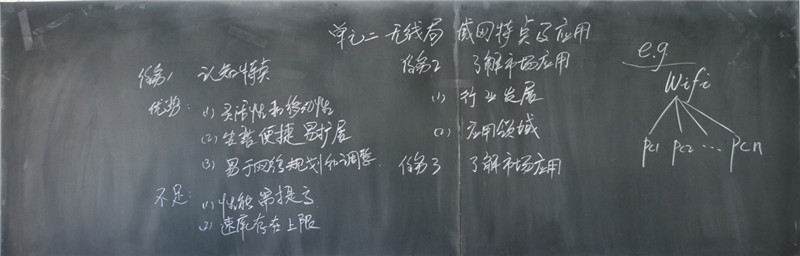 单元二 无线局域网特点与应用
任务1 认知特点
优势: (1) 灵活性和移动性
(2) 安装便捷 易扩展
(3) 易于网络规划和调整
不足: (1) 性能需提高
(2) 速率存在上限
任务2 了解市场应用
(1) 行业发展
(2) 应用领域
任务3 了解市场应用
e.g
Wifi
pc1 pc2 ... pcn